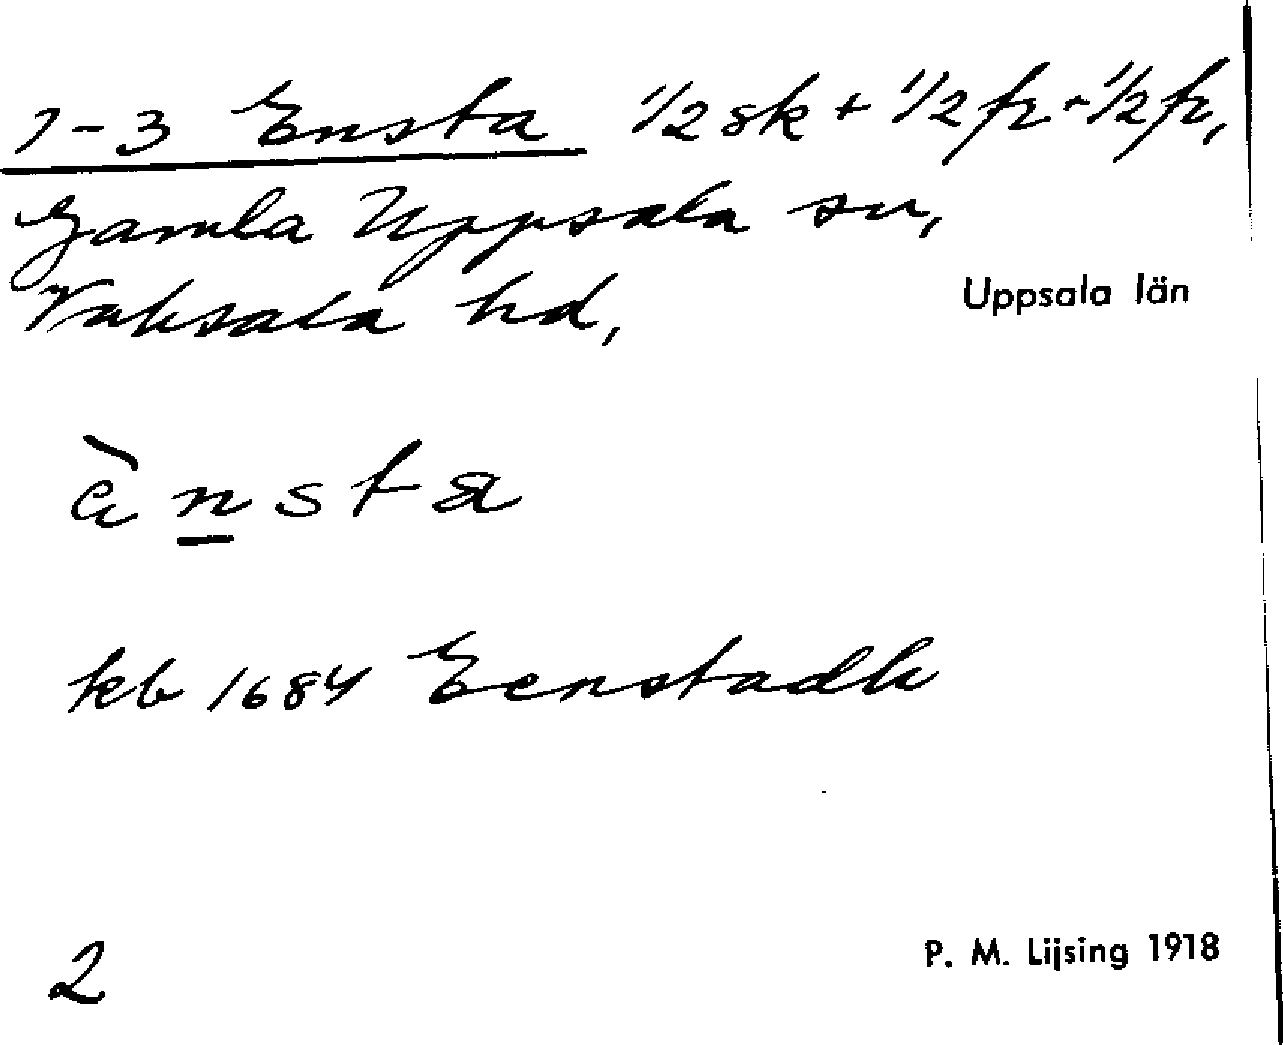 1-3 Ensta 1/2 sk + 1/2 fr + 1/2 fr,
Gamla Uppsala sn,
Vaksala hd,
Uppsala län
ènsta
kb 1684 Eenstadh
2
P. M. Lijsing 1918